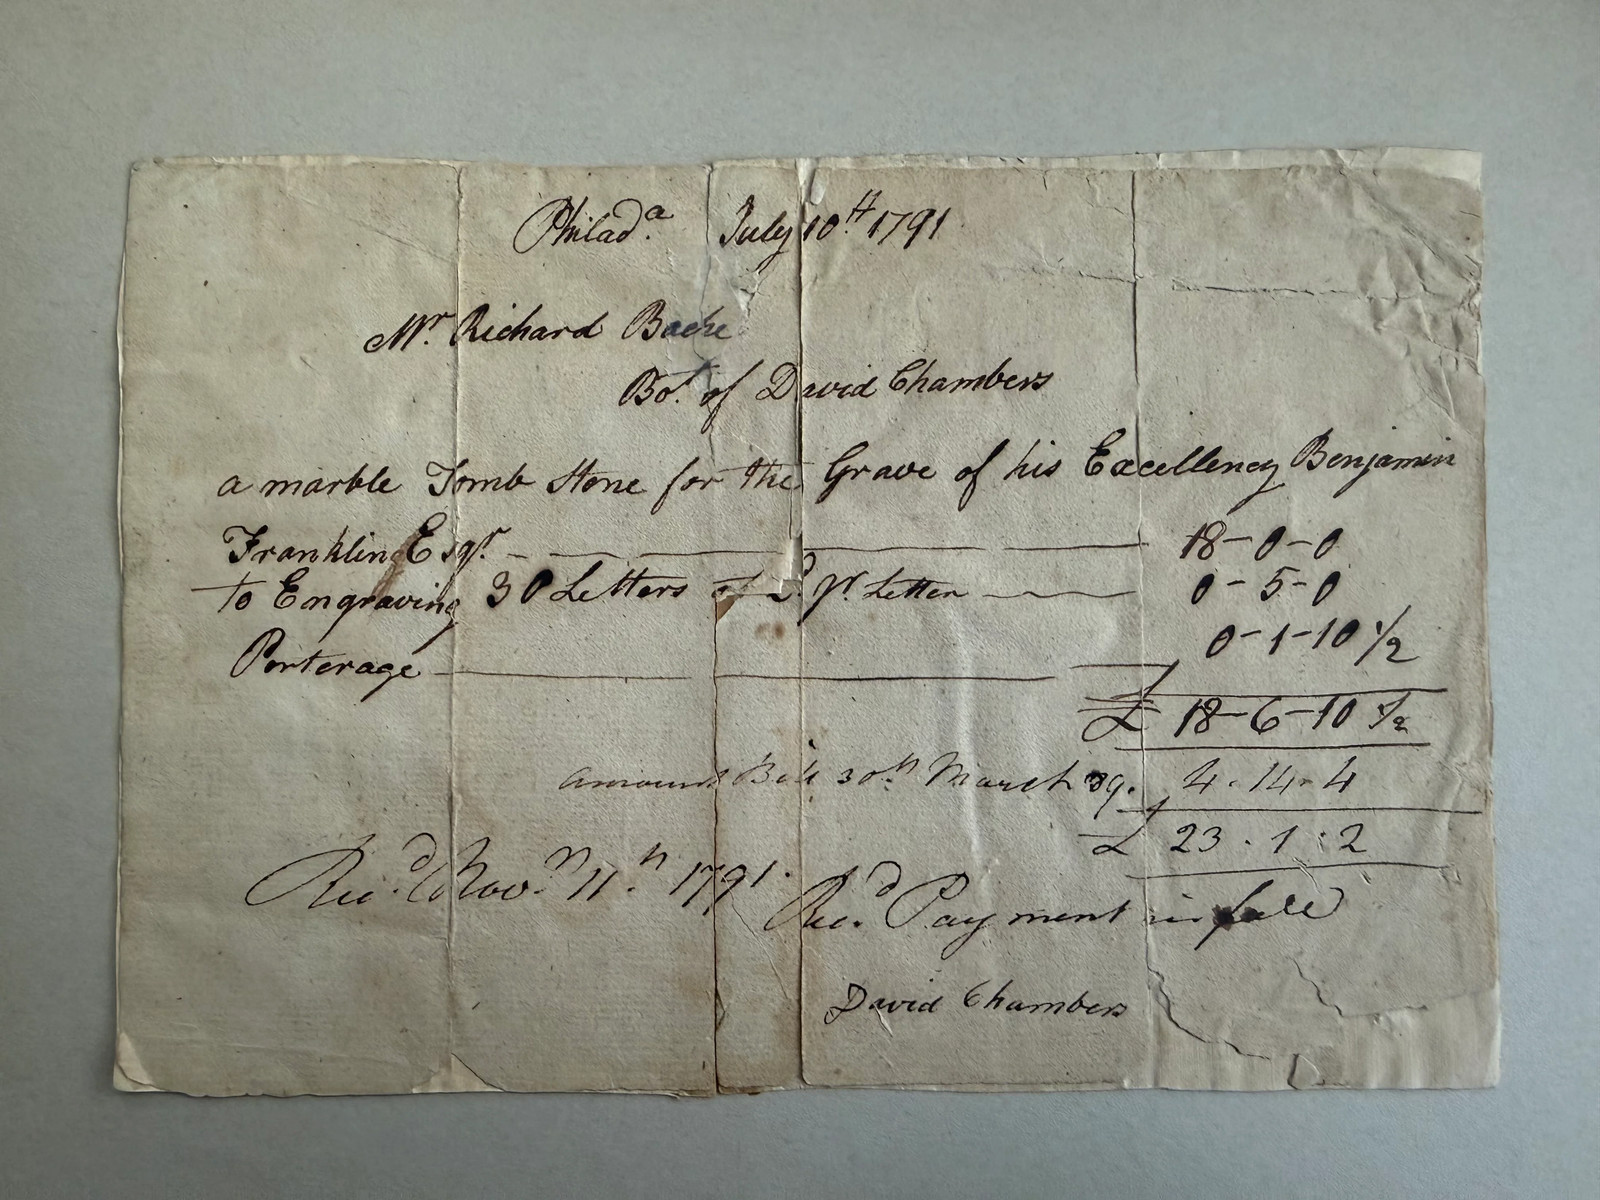 Philad.ª July 10th 1791
Mr. Richard Bache
Bot. of David Chambers
a marble Tomb Stone for the Grave of his Excellency Benjamin
Franklin Esqr. 18-0-0
to Engraving 30 Letters at 2d pr. Letter 0-5-0
0-1-10 1/2
Porterage
£ 18-6-10 1/2
amount Bill 30th March 89. 4.14.4
£ 23.1:2
Rec.d Nov.m 11.th 1791. Rec.d Payment in full
David Chambers